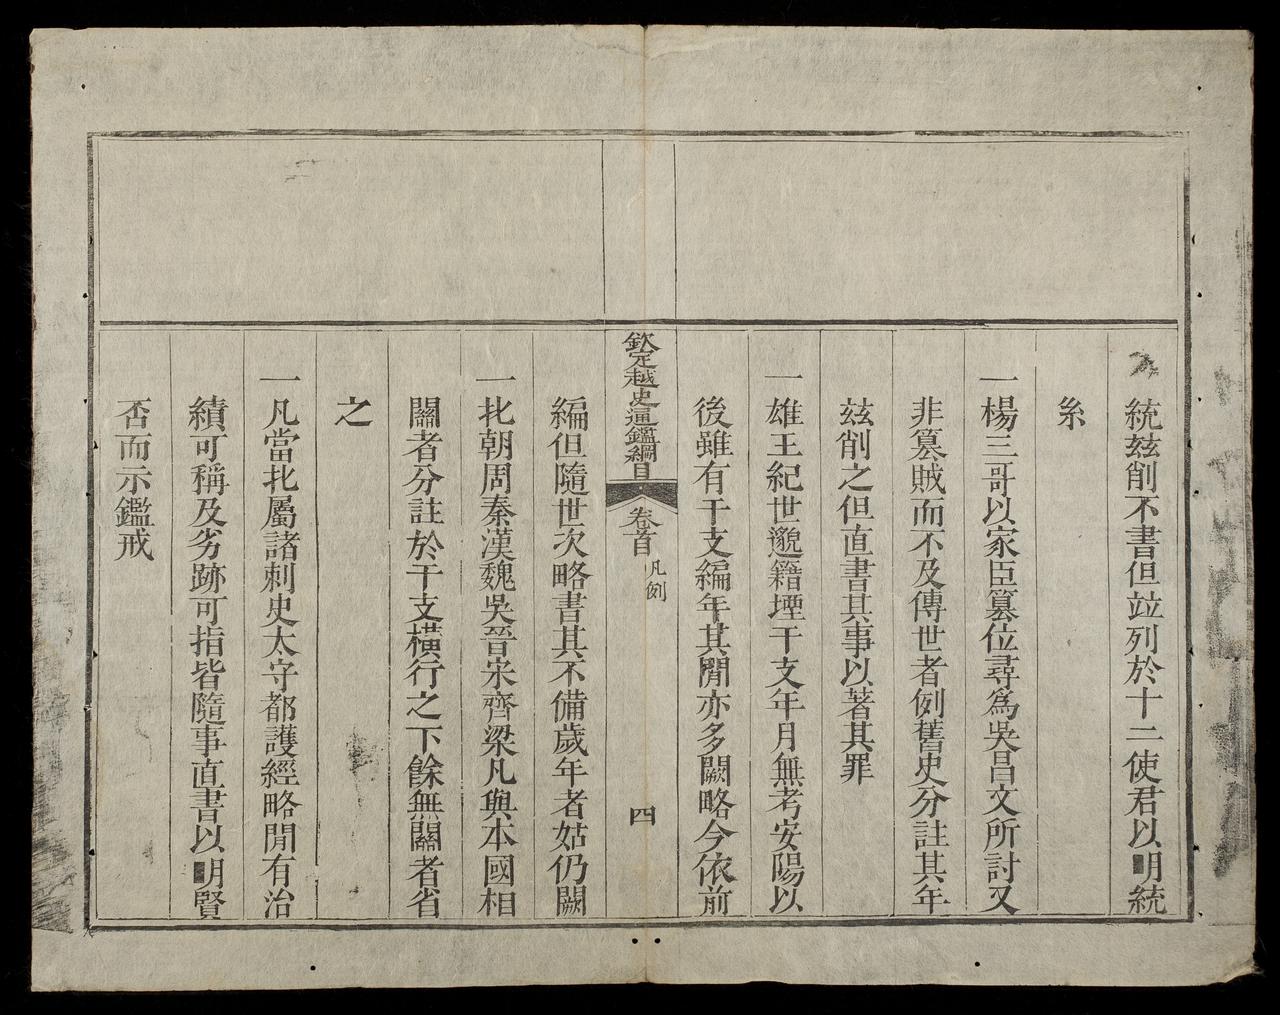 統玆削不書但竝列於十二使君以明統
糸
一楊三哥以家臣篡位尋爲吳昌文所討又
非篡賊而不及傳世者例舊史分註其年
玆削之但直書其事以著其罪
一雄王紀世邈籍堙干支年月無考安陽以
後雖有干支編年其閒亦多闕略今依前
欽定越史通鑑綱目 卷首 凡例 四
編但隨世次略書其不備歲年者姑仍闕
一北朝周秦漢魏吳晉宋齊梁凡與本國相
關者分註於干支橫行之下餘無關者省
之
一凡當北屬諸刺史太守都護經略閒有治
績可稱及劣跡可指皆隨事直書以明賢
否而示鑑戒